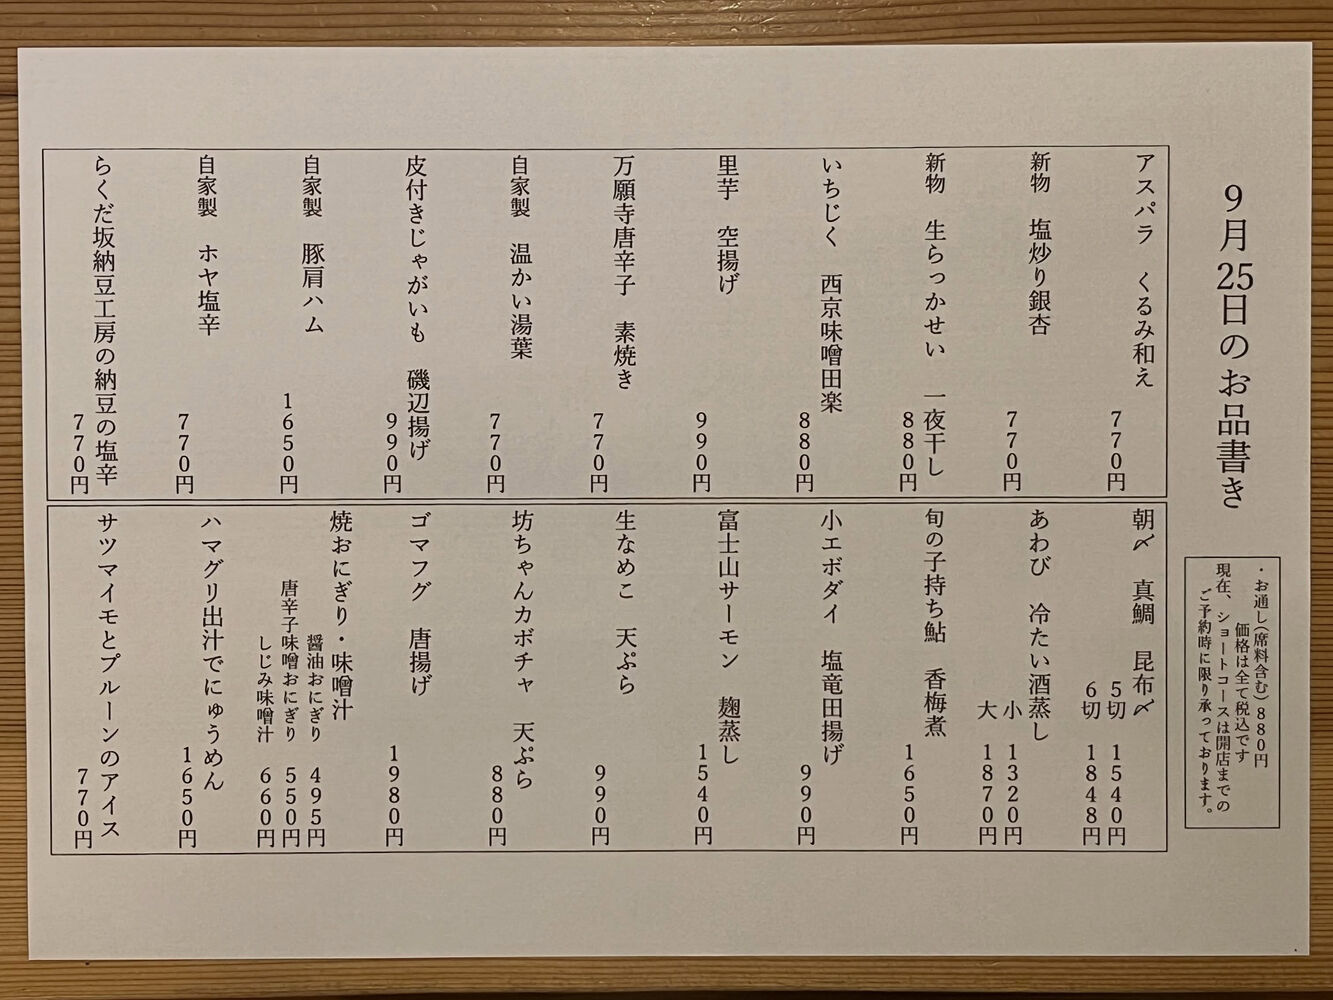 9月25日のお品書き
・お通し(席料含む)880円
価格は全て税込です
現在、ショートコースは開店までの
ご予約時に限り承っております。
アスパラ くるみ和え
770円
新物 塩炒り銀杏
770円
新物 生らっかせい 一夜干し
880円
いちじく 西京味噌田楽
880円
里芋 空揚げ
990円
万願寺唐辛子 素焼き
770円
自家製 温かい湯葉
770円
皮付きじゃがいも 磯辺揚げ
990円
自家製 豚肩ハム
1650円
自家製 ホヤ塩辛
770円
らくだ坂納豆工房の納豆の塩辛
770円
朝〆 真鯛 昆布〆
5切 1540円
6切 1848円
あわび 冷たい酒蒸し
小 1320円
大 1870円
旬の子持ち鮎 香梅煮
1650円
小エボダイ 塩竜田揚げ
990円
富士山サーモン 麹蒸し
1540円
生なめこ 天ぷら
990円
坊ちゃんカボチャ 天ぷら
880円
ゴマフグ 唐揚げ
1980円
焼おにぎり・味噌汁
醤油おにぎり 495円
唐辛子味噌おにぎり 550円
しじみ味噌汁 660円
ハマグリ出汁でにゅうめん
1650円
サツマイモとプルーンのアイス
770円